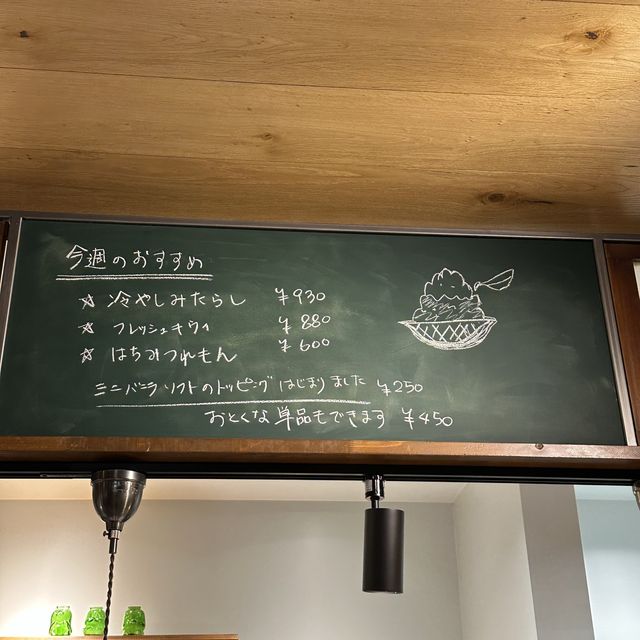 今週のおすすめ
☆ 冷やしみたらし ¥930
☆ フレッシュキウイ ¥880
☆ はちみつれもん ¥600
ミニバニラソフトのトッピングはじまりました ¥250
おとくな単品もできます ¥450